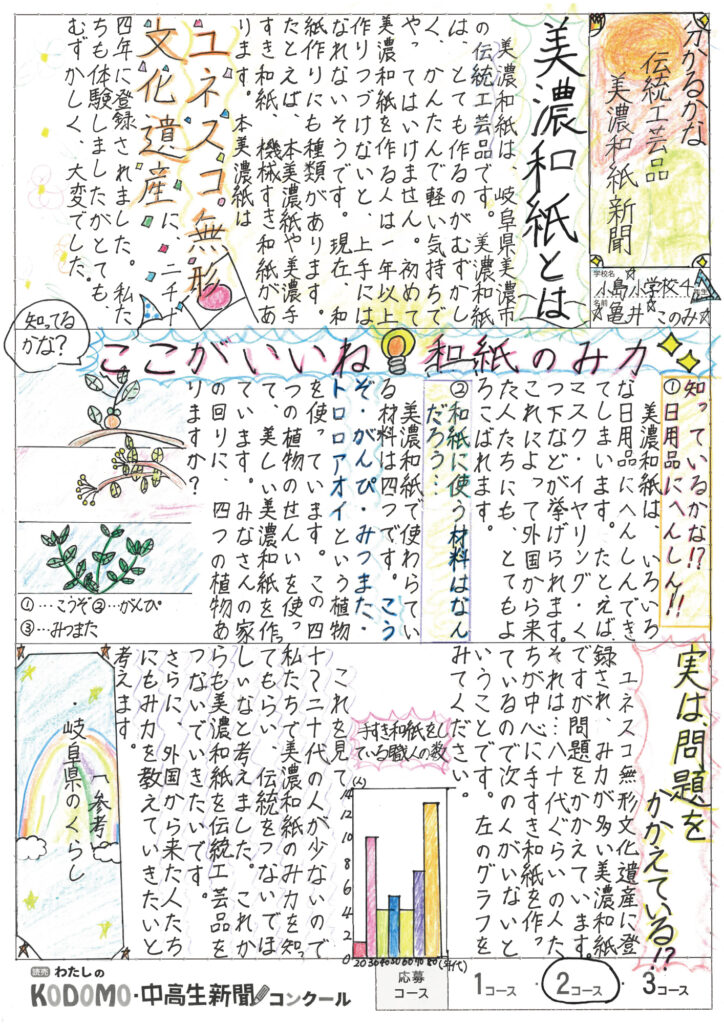 分かるかな
伝統工芸品
美濃和紙新聞
学校名
小島小学校4年生
名前
亀井 このみ
美濃和紙とは
美濃和紙は、岐阜県美濃市
の伝統工芸品です。美濃和紙
は、とても作るのがむずかし
く、かんたんで軽い気持ちで
やってはいけません。初めて
美濃和紙を作る人は一年以上
作りつづけないと、上手には
なれないそうです。現在、和
紙作りにも種類があります。
たとえば、本美濃紙や美濃手
すき和紙、機械すき和紙があ
ります。本美濃紙は
ユネスコ無形
文化遺産に、二千十
四年に登録されました。私た
ちも体験しましたがとても
むずかしく、大変でした。
知ってる
かな?
ここがいいね 和紙のみ力
知っているかな!?
①日用品にへんしん!!
美濃和紙は、いろいろ
な日用品にへんしんでき
てしまいます。たとえば、
マスク・イヤリング・く
つ下などが挙げられます。
これによって外国から来
た人たちにも、とてもよ
ろこばれます。
②和紙に使う材料はなん
だろう…
美濃和紙で使わってい
る材料は四つです。こう
ぞ・がんぴ・みつまた・
トロロアオイという植物
を使っています。この四
つの植物のせんいを使っ
て、美しい美濃和紙を作っ
ています。みなさんの家
の回りに、四つの植物あ
りますか?
①…こうぞ②…がんぴ
③…みつまた
実は、問題を
かかえている!?
ユネスコ無形文化遺産に登
録され、み力が多い美濃和紙
ですが問題をかかえています。
それは…八十代ぐらいの人た
ちが中心に手すき和紙を作っ
ているので次の人がいないと
いうことです。左のグラフを
みてください。
手すき和紙をし
ている職人の数
(人)
14
12
10
8
6
4
2
0
20 30 40 50 60 70 80 (年代)
これを見て
十〜二十代の人が少ないので
私たちで美濃和紙のみ力を知っ
てもらい、伝統をつないでほ
しいなと考えました。これか
らも美濃和紙を伝統工芸品を
つないでいきたいです。
さらに、外国から来た人たち
にもみ力を教えていきたいと
考えます。
参考
・岐阜県のくらし
読売 わたしの
KODOMO・中高生新聞コンクール
応募
コース
1コース・2コース・3コース